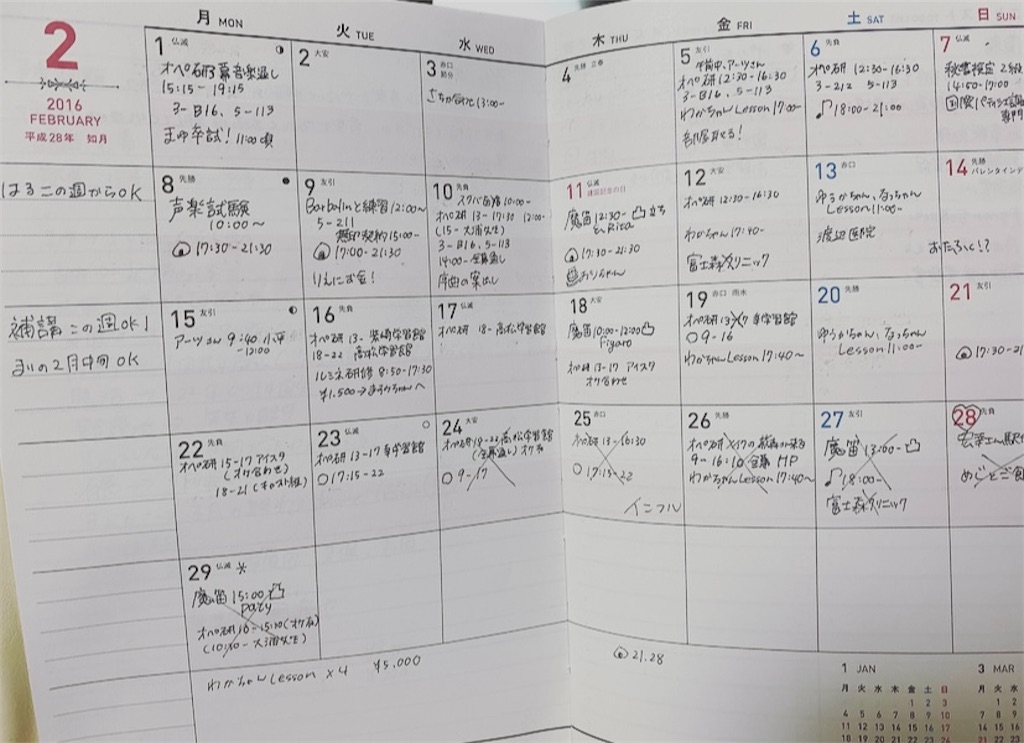 2
2016
FEBRUARY
平成28年 如月
月 MON
火 TUE
水 WED
木 THU
金 FRI
土 SAT
日 SUN
1 仏滅
オペ研3幕音楽通し
15:15 - 19:15
3-B16、5-113
まゆ卒試! 11:00頃
2 大安
3 赤口
節分
13:00-
4 先勝 立春
5 友引
午前中、アーツさん
オペ研 12:30-16:30
3-B16、5-113
わかちゃん Lesson 17:00-
6 先負
オペ研 12:30-16:30
3-212 5-113
♪18:00-21:00
7 仏滅
秘書検定 2級
14:50-17:00
はるこの週からOK
8 先勝
声楽試験
10:00～
17:30-21:30
9 友引
Barbalinと練習12:00～
5-211
15:00-
17:00-21:30
りえにお金!
10 先負
10:00-
オペ研 13-17:30
(15-大浦先生)
3-B16、5-113
14:00-
序曲の案出し
11 仏滅
建国記念の日
魔笛 12:30- 立ち
17:30-21:30
12 大安
オペ研 12:30-16:30
わかちゃん 17:40-
富士森クリニック
13 赤口
ゆうかちゃん、なっちゃん
Lesson 11:00-
渡辺医院
14 先勝
バレンタインデ
補講 この週OK!
まいの2月中旬OK
15 友引
アーツさん 9:40 小平
-12:00
16 先負
オペ研 13- 柴崎学習館
18-22 高松学習館
ルミネ研修 8:50-17:30
¥1,500→
17 仏滅
オペ研 18- 高松学習館
18 大安
魔笛10:00-12:00
Figaro
オペ研 13-17 アイスタ
オケ合わせ
19 赤口 雨水
オペ研 13-17 幸学習館
○9-16
わかちゃん Lesson 17:40～
20 先勝
ゆうかちゃん、なっちゃん
Lesson 11:00-
21 友引
17:30-21
22 先負
オペ研 15-17 アイスタ
(オケ合わせ)
18-21 (キャスト組)
23 仏滅
オペ研 13-17 幸学習館
○17:15-22
24 大安
オペ研 18-22 高松学習館
(全幕通し)
○9-17
25 赤口
オペ研 13-16:30
○17:15-22
インフル
26 先勝
9-16:10 全幕 HP
わかちゃん Lesson 17:40～
27 友引
魔笛 13:00-
♪18:00-
富士森クリニック
28 先負
めじとご飯
29 仏滅
魔笛 15:00
paty
(10:30-大浦先生)
わかちゃん Lesson ×4 ¥5,000
21.28
1 JAN
月 火 水 木 金 土 日
1 2 3
4 5 6 7 8 9 10
11 12 13 14 15 16 17
18 19 20 21 22 23 24
3 MAR
月 火 水
1 2
7 8 9
14 15 16
21 22 23